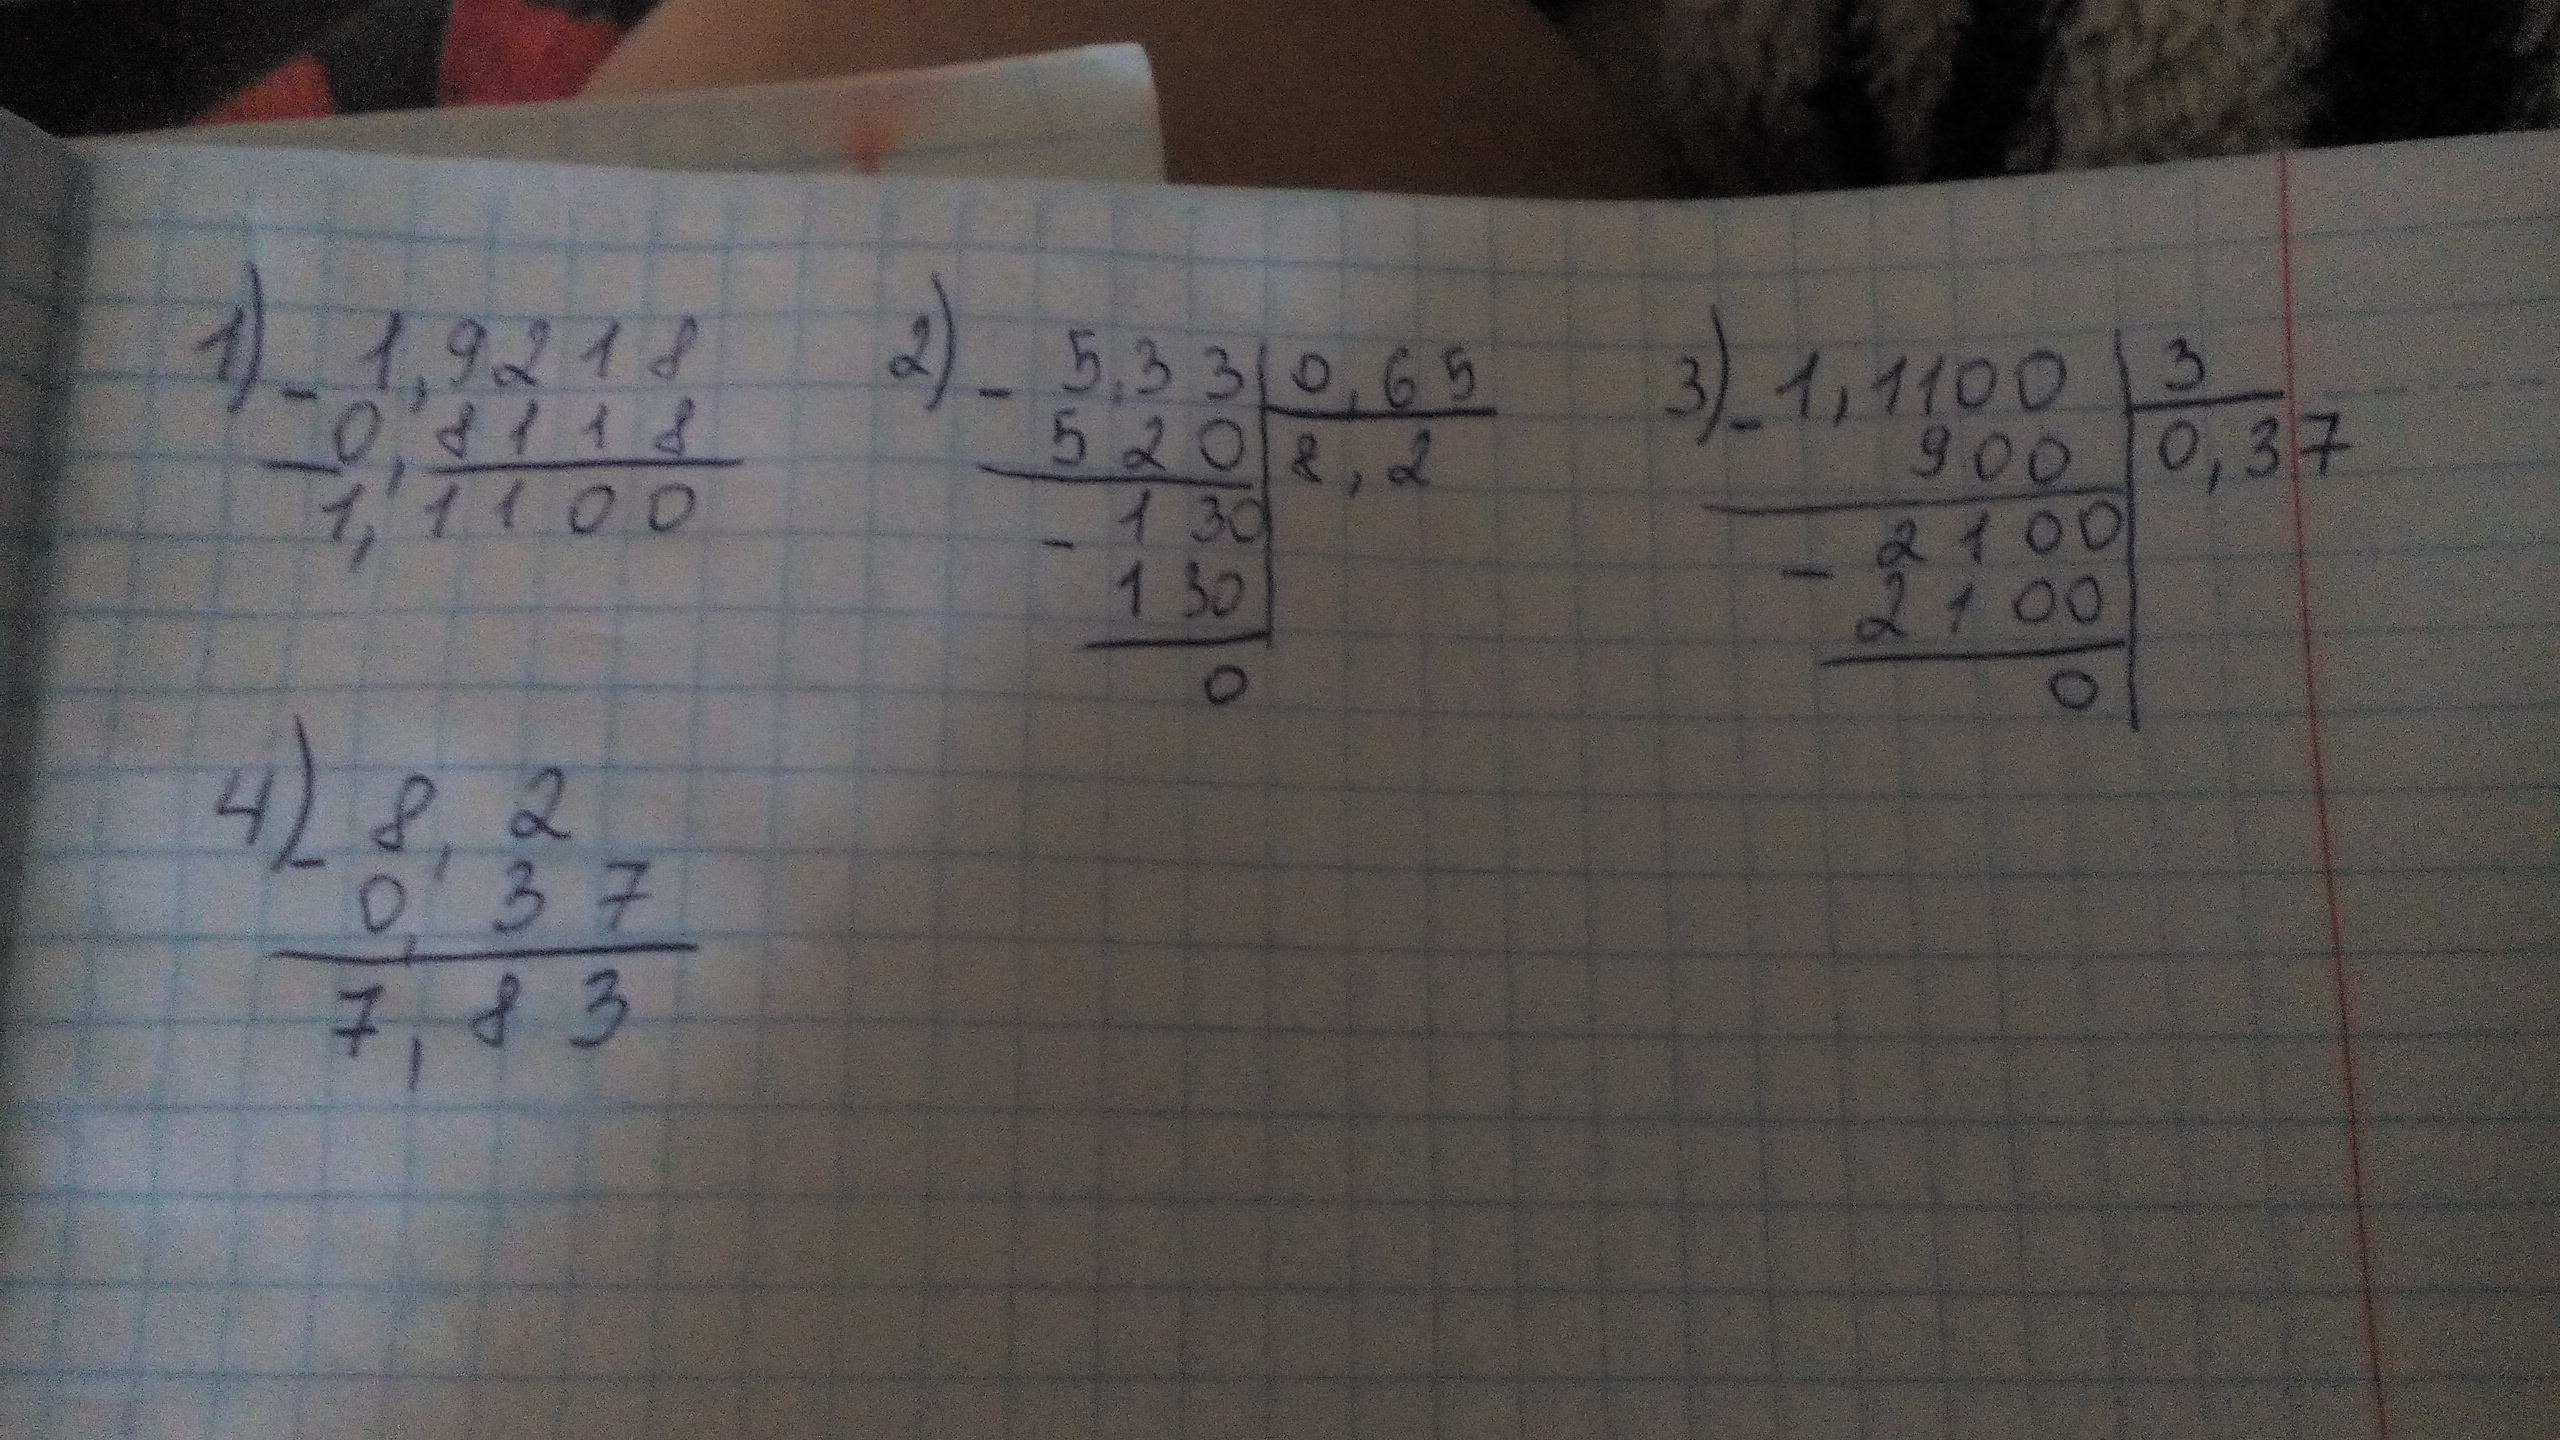 1) - 1,9218
0,8118
1,1100
2) - 5,33 | 0,65
520 | 8,2
- 130
130
0
3) - 1,1100 | 3
900 | 0,37
- 2100
2100
0
4) - 8,2
0,37
7,83